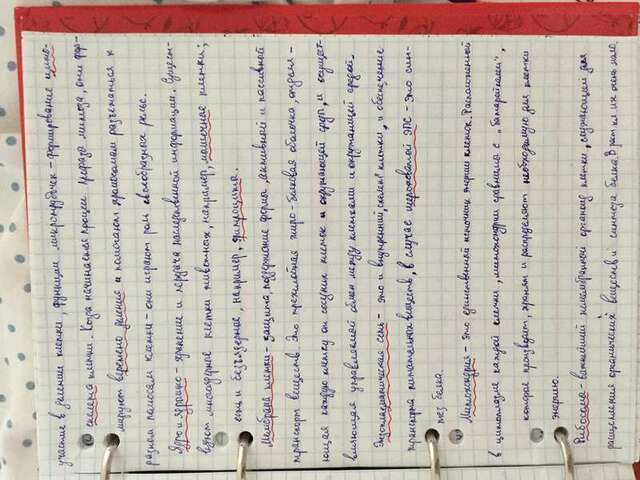 участие в делении клетки, функции микротрубочек – формирование цито-
скелета клетки. Когда начинается процесс профаза митоза, они фор-
мируют веретено деления и помогают хромосомам разъехаться к
разном полюсам клетки – они играют роль своеобразных рельс.
Ядро и ядрышко – хранение и передача наследственной информации. Сущест-
вуют многоядерное клетки животных, например, мышечные клетки;
есть и безъядерное, например, эритроциты.
Мембрана клетки – защита, поддержание формы, активный и пассивной
транспорт веществ. Это трехслойная жиро-белковая оболочка, отделя-
ющая каждую клетку от соседних клеток и окружающей среды, и осущест-
вляющая управляемой обмен между клетками и окружающей средой.
Эндоплазматическая сеть – это и внутренний "скелет" клетки, и обеспечение
транспорта питательных веществ, в случае шероховатой ЭПС – это син-
тез белка.
Митохондрия – это единственной источник энергии клеток. Расположенной
в цитоплазме каждой клетки, митохондрии сравнимы с „батарейками",
которое производят, хранят и распределяют необходимую для клетки
энергию.
Рибосома – важнейший немембранной органоид клетки, служающей для
расщепления органических веществ и синтеза белка. В раст кл их очень мало.